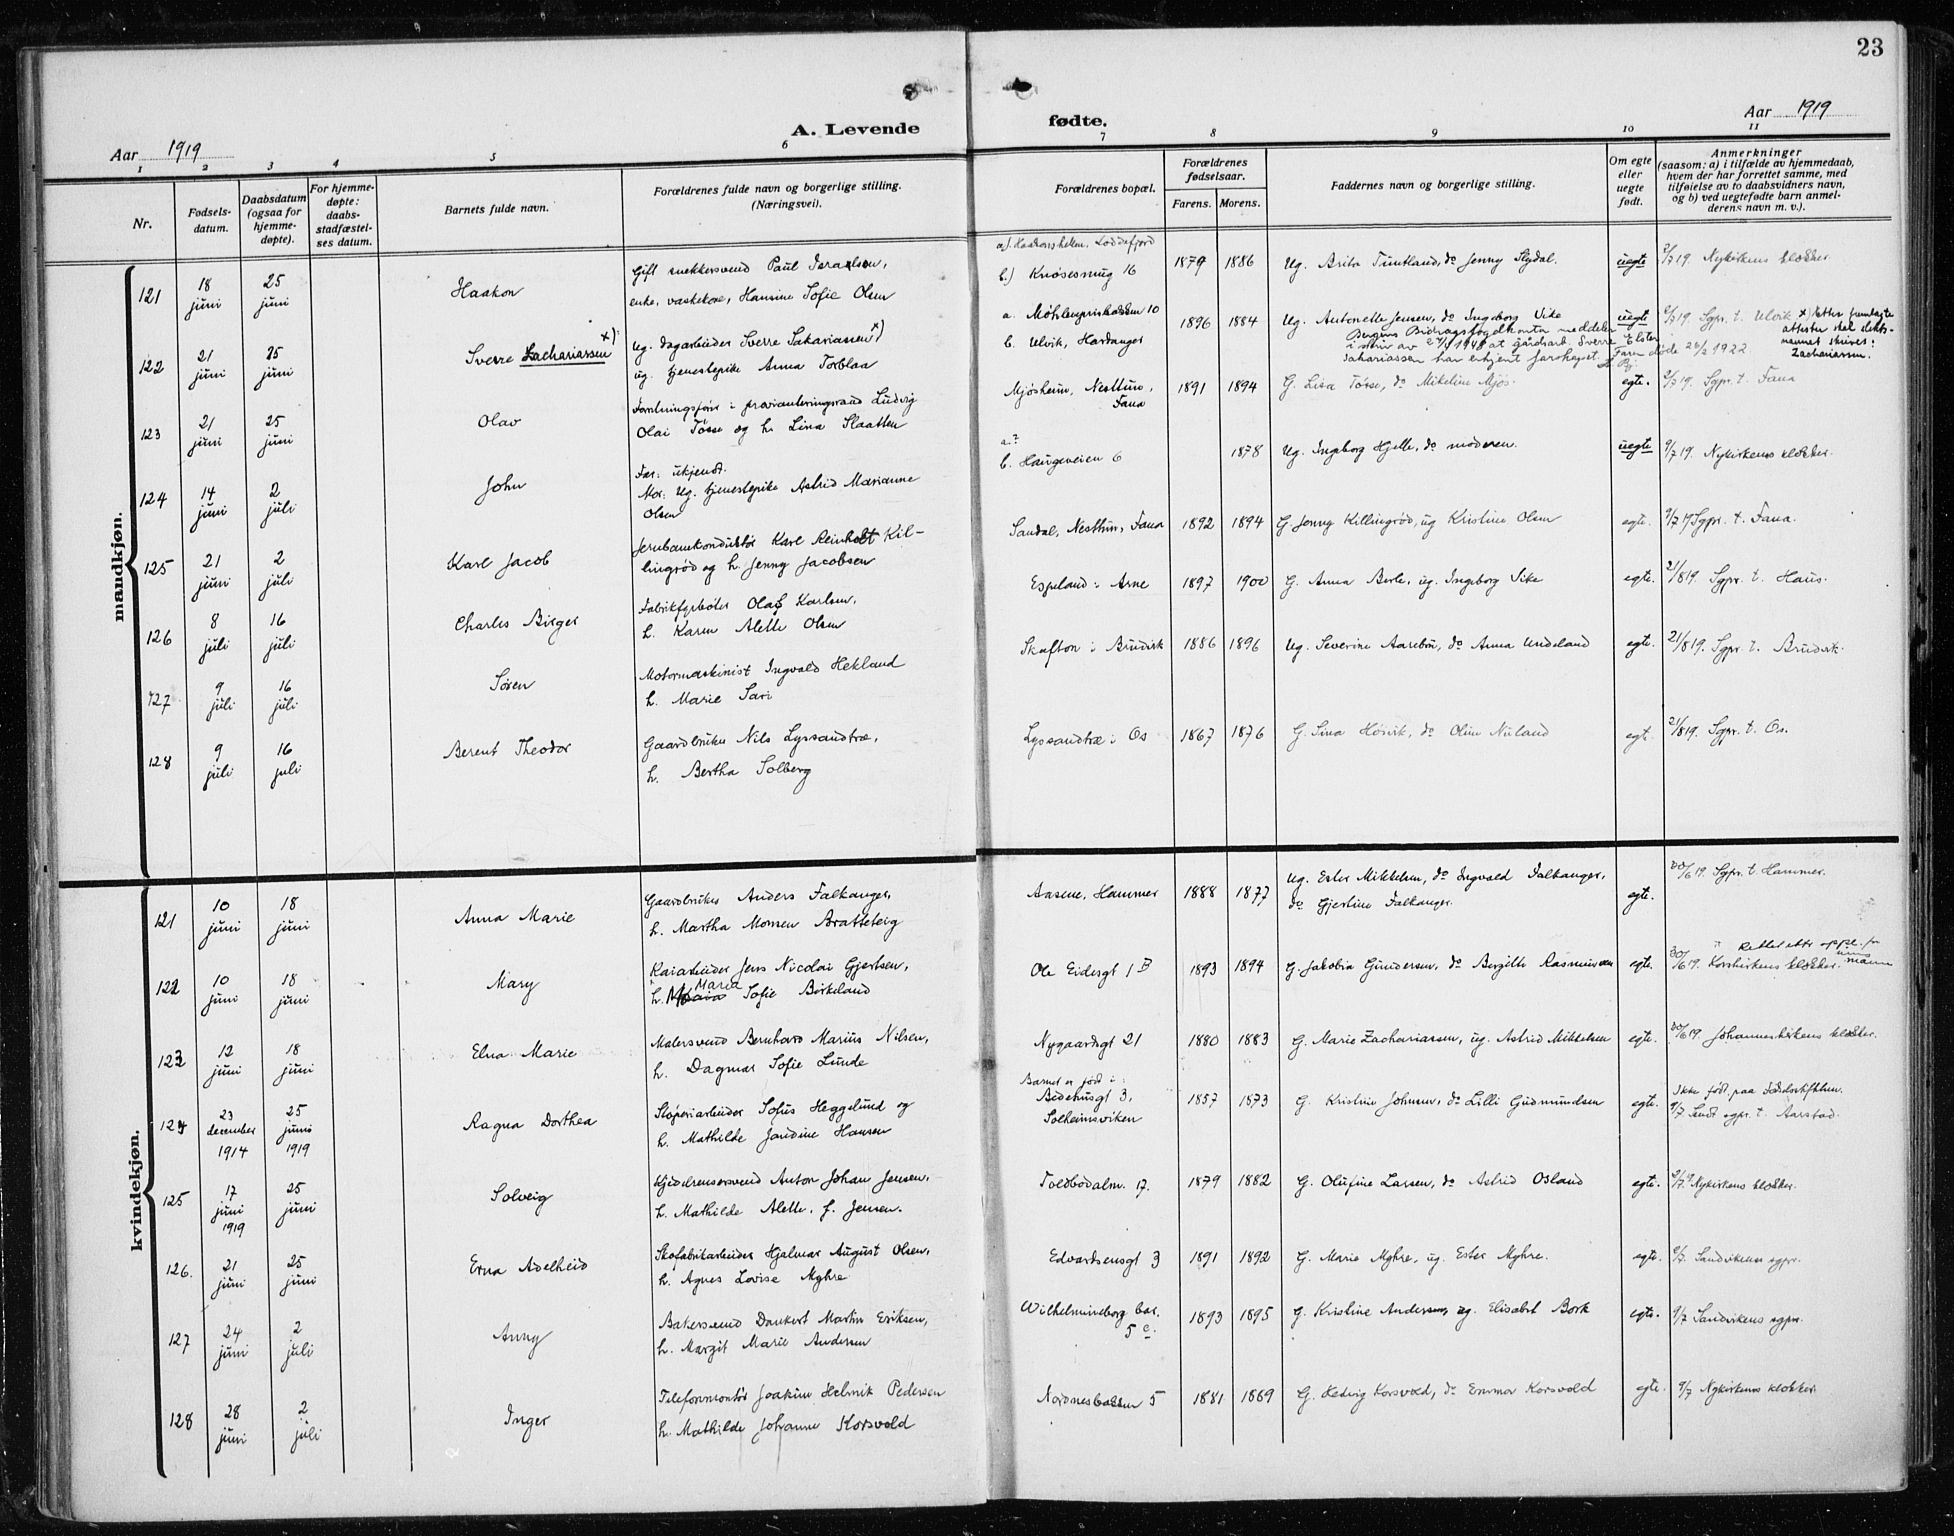 23
Aar 1919
A. Levende
fødte.
Aar 1919
1 2 3 4 5 6 7 8 9 10 11
Nr.
Fødsels-
datum.
Daabsdatum
(ogsaa for
hjemme-
døpte).
For hjemme-
døpte:
daabs-
stadfæstel-
ses datum.
Barnets fulde navn.
Forældrenes fulde navn og borgerlige stilling.
(Næringsvei).
Forældrenes bopæl.
Forældrenes
fødselsaar.
Farens. Morens.
Faddernes navn og borgerlige stilling.
Om egte
eller
uegte
født.
Anmerkninger
(saasom: a) i tilfælde av hjemmedaab,
hvem der har forrettet samme, med
tilføielse av to daabsvidners navn,
og b) ved uegtefødte barn anmel-
derens navn m. v.).
mandkjøn.
121 18 juni 25 juni Haakon
Gift snekkersvend Paul Israelsen,
enke, vaskekone, Hansine Sofie Olsen
a). Haakonshellen, Loddefjord
b.) Knøsesmug 16
1879 1886 Ug. Brita Tuntland, do Jenny Slydal. uegte 2/7 19. Nykirkens klokker.
122 21 juni 25 juni Sverre Zachariassen x)
Ug. dagarbeider Sverre Sakariassen x)
ug. tjenestepike Anna Torblaa
a. Møhlenprisbakken 10
b. Ulvik, Hardanger
1896 1884 Ug. Antonette Jensen, do Ingeborg Vike
Bergens Bidragsfogdkontor meddeler
i skriv av 27/1 1948 at gårdsarb. Sverre Elster
Sakariassen har erkjent farskapet. Faren døde 26/2 1922.
uegte 2/7 19. Sgpr. t. Ulvik x) Etter fremlagte
attester skal slekts-
navnet skrives:
Zachariassen.
123 21 juni 25 juni Olav
Forretningsfører i provianteringsraad Ludvig
Olai Tøsse og h. Lina Slaatten
Mjøsheim, Nesttun,
Fana
1891 1894 G. Lisa Tøsse, do Mikeline Mjøs. egte. 2/7 19. Sgpr. t. Fana
124 14 juni 2 juli John
Far: ukjendt.
Mor: Ug. tjenestepike Astrid Marianne
Olsen
a. ?
b. Haugeveien 6
1878 Ug. Ingeborg Hjelle, do moderen. uegte 9/7 19. Nykirkens klokker.
125 21 juni 2 juli Karl Jacob
Jernbanekonduktør Karl Reinholt Kil-
lingrød og h. Jenny Jacobsen
Sandal, Nesttun, Fana 1892 1894 G. Jenny Killingrød, ug Kristine Olsen egte. 9/7 19 Sgpr. t. Fana.
126 8 juli 16 juli Charles Birger
Fabrikfyrbøter Olaf Karlsen,
h. Karen Alette Olsen
Espeland i Arne 1897 1900 G. Anna Berle, ug. Ingeborg Vike egte. 21/8 19. Sgpr. t. Haus.
127 9 juli 16 juli Søren
Motormaskinist Ingvald Hekland
h. Marie
Skafton i Bruvik 1886 1896 Ug. Severine Aarebru, do Anna Undeland egte. 21/8 19. Sgpr. t. Bruvik.
128 9 juli 16 juli Berent Theodor
Gaardbruker Nils Lyssandtræ,
h. Bertha Solberg
Lyssandtræ i Os 1867 1876 G. Sina Høivik, do Oline Nuland egte. 21/8 19. Sgpr. t. Os.
kvindekjøn.
121 10 juni 18 juni Anna Marie
Gaardbruker Anders Falkanger,
h. Martha Monsen Bratteteig
Aasene, Hammer 1888 1877
Ug. Ester Mikkelsen, do Ingvald Falkanger,
do Gjertine Falkanger.
egte. 30/6 19. Sgpr. t. Hammer.
122 10 juni 18 juni Mary
Kaiarbeider Jens Nicolai Gjertsen,
h. Maria Sofie Birkeland
Ole Eidesgt 1 B 1893 1894 G. Jakobia Gundersen, do Bergitte Rasmussen egte. 30/6 19. Korskirkens klokker.
Rettet etter oppl. fra
123 12 juni 18 juni Elna Marie
Malersvend Bernhard Marius Nilsen,
h. Dagmar Sofie Lunde
Nygaardsgt 21 1880 1883 G. Marie Zachariassen, ug. Astrid Mikkelsen egte. 30/6 19. Johanneskirkens klokker.
124 23 december 1914 25 juni 1919 Ragna Dorthea
Støperiarbeider Sofus Heggelund og
h. Mathilde Jandine Hansen
Barnet er født i:
Bedehusgt 3,
Solheimsviken
1857 1873 G. Kristine Johnsen, do Lilli Gudmundsen egte.
Ikke født paa Fødselsstiftelsen.
9/7 Sendt sgpr. t. Aarstad.
125 17 juni 1919 25 juni Solveig
Kjedelrensersvend Anton Johan Jensen,
h. Mathilde Alette, f. Jensen.
Toldbodalm. 17. 1879 1882 G. Olufine Larsen, do Astrid Osland egte. 2/7 19 Nykirkens klokker.
126. 21 juni 25 juni Erna Adelheid
Skofabrikarbeider Hjalmar August Olsen,
h. Agnes Lovise Myhre
Edvardsensgt 3 1891 1892 G. Marie Myhre, ug. Ester Myhre. egte. 2/7 Sandvikens sgpr.
127 24 juni 2 juli Anny
Bakersvend Dankert Martin Eriksen,
h. Margit Marie Andersen
Wilhelmineborg bak.
5 c.
1893 1895 G. Kristine Andersen, ug. Elisabet Bork egte. 9/7 Sandvikens sgpr.
128 28 juni 2 juli Inger
Telefonmontør Joakim Helmik Pedersen
h. Mathilde Johanne Korsvold
Nordnesbakken 5 1881 1869 G. Hedvig Korsvold, do Emma Korsvold egte. 9/7 Nykirkens klokker.